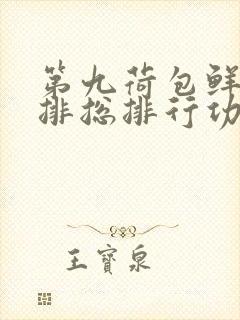 第九荷包鲜
排总排行功
王寶泉